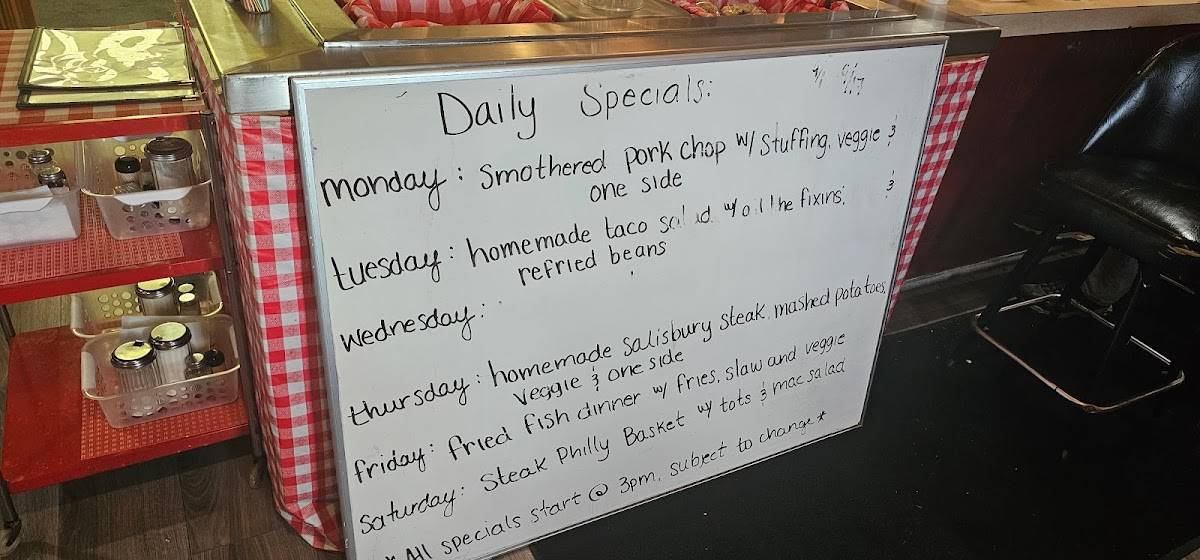 Daily Specials:
monday: smothered pork chop w/ stuffing, veggie &
one side
tuesday: homemade taco salad w/ all the fixins, &
refried beans
wednesday:
thursday: homemade salisbury steak, mashed potatoes,
veggie & one side
friday: fried fish dinner w/ fries, slaw and veggie
saturday: Steak Philly Basket w/ tots & mac salad
* All specials start @ 3pm, subject to change *